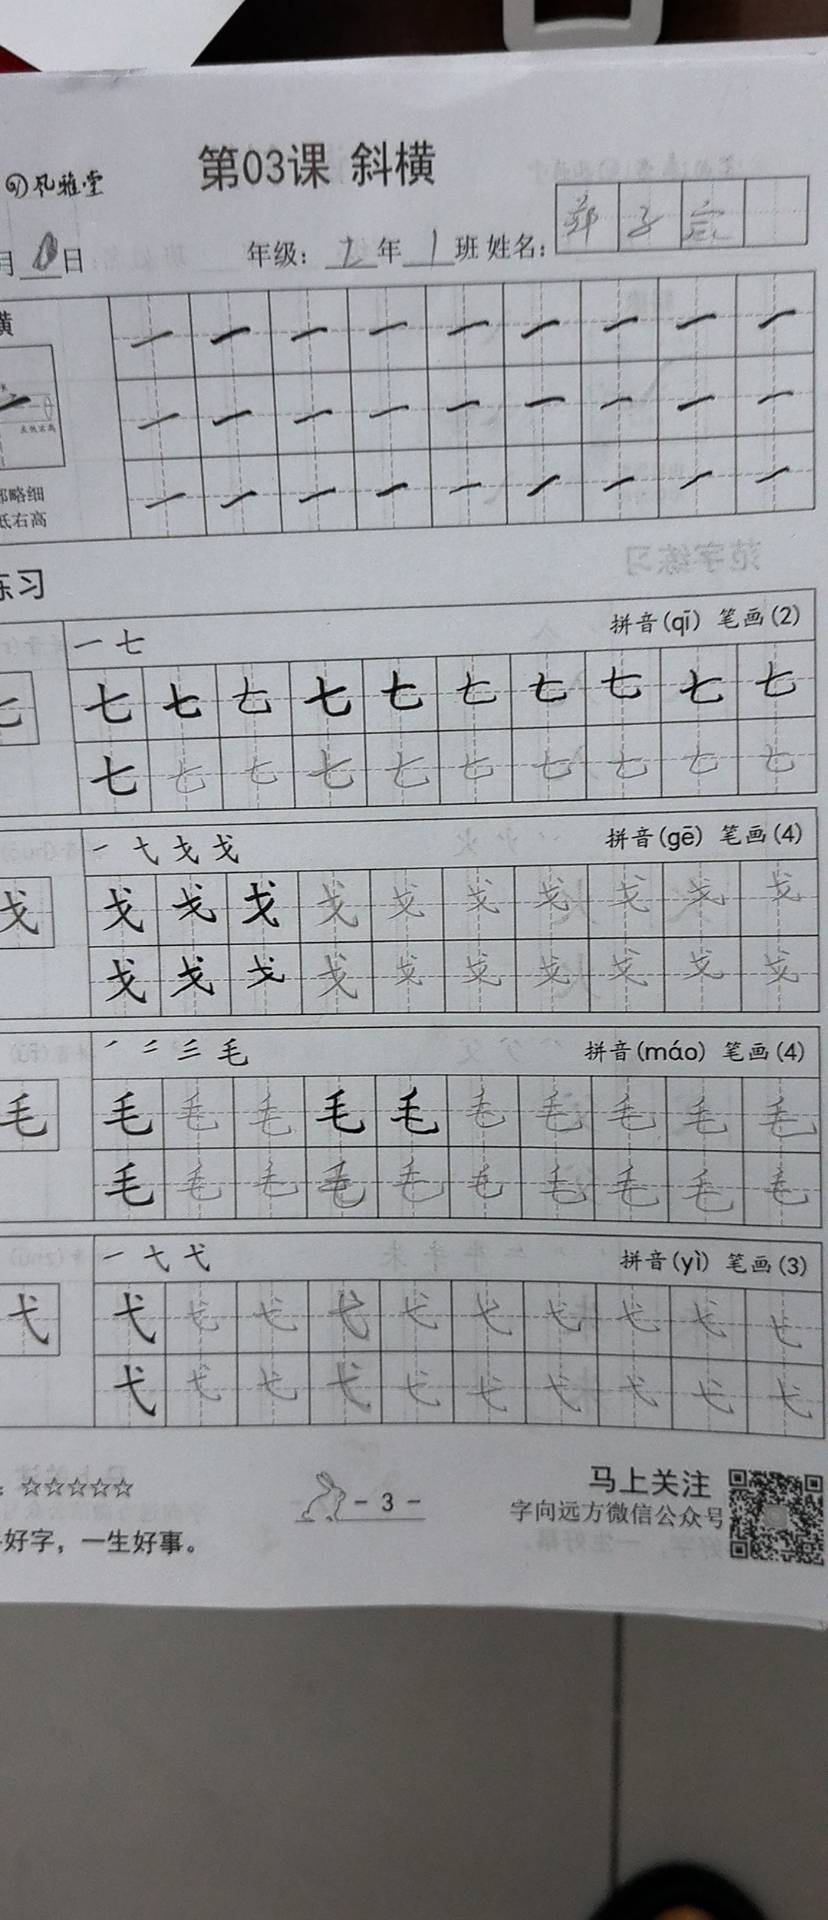 第03课 斜横
风雅堂
月 日 年级: 2 年 1 班 姓名:
横
左低右高
部略细
低右高
练习
一 七 拼音(qī) 笔画(2)
七 七 七 七 七 七 七 七 七 七 七
七 七 七 七 七 七 七 七 七 七
一 弋 戈 戈 拼音(gē) 笔画(4)
戈 戈 戈 戈 戈 戈 戈 戈 戈 戈 戈
戈 戈 戈 戈 戈 戈 戈 戈 戈 戈
毛 拼音(máo) 笔画(4)
毛 毛 毛 毛 毛 毛 毛 毛 毛 毛 毛
毛 毛 毛 毛 毛 毛 毛 毛 毛 毛
一 弋 弋 拼音(yì) 笔画(3)
弋 弋 弋 弋 弋 弋 弋 弋 弋 弋 弋
弋 弋 弋 弋 弋 弋 弋 弋 弋 弋
: ☆☆☆☆☆
- 3 -
马上关注
字向远方微信公众号
好字，一生好事。